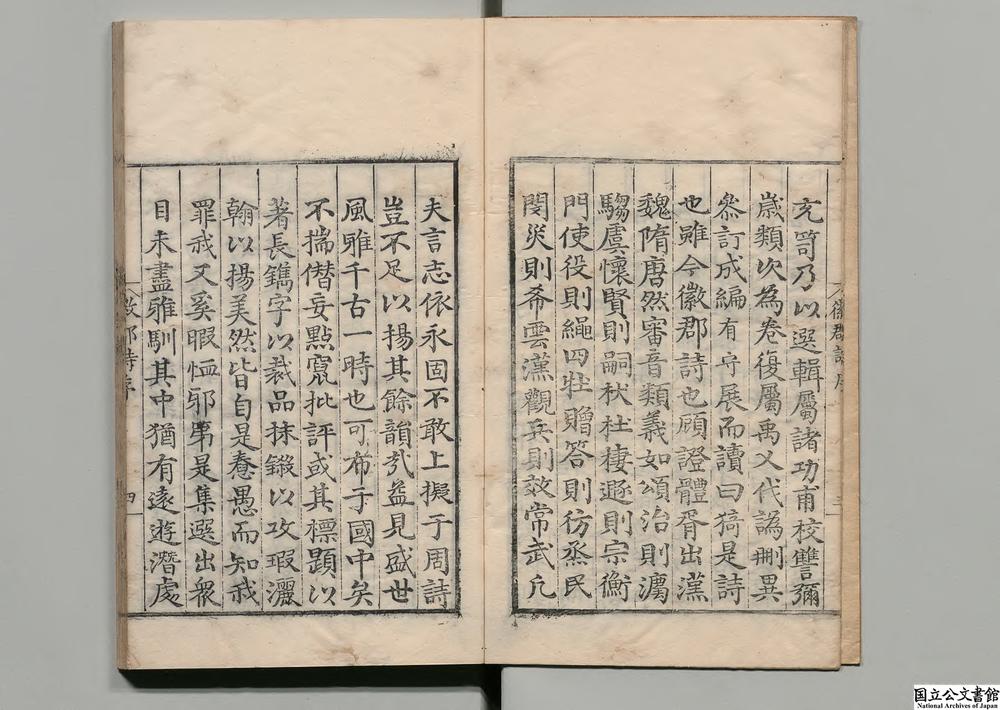 充笥乃以選輯屬諸功甫校讐彌
歲類次為卷復屬禹乂代譌刪異
叅訂成編有守展而讀曰猗是詩
也雖今徽郡詩也頋證體胥出漢
魏隋唐然審音類義如頌治則瀉
騶虞懷賢則嗣杕杜棲遯則宗衡
門使役則繩四牡贈答則彷烝民
閔災則希雲漢觀兵則效常武凡
夫言志依永固不敢上擬于周詩
豈不足以揚其餘韻㢤益見盛世
風雅千古一時也可布于國中矣
不揣僭妄點竄批評或其標題以
著長鐫字以裁品抹鍛以攻瑕灑
翰以揚美然皆自是惷愚而知我
罪我又奚暇恤邪第是集選出衆
目未盡雅馴其中猶有遠遊潛處
徽郡詩序
三
徽郡詩序
四
国立公文書館
National Archives of Japan